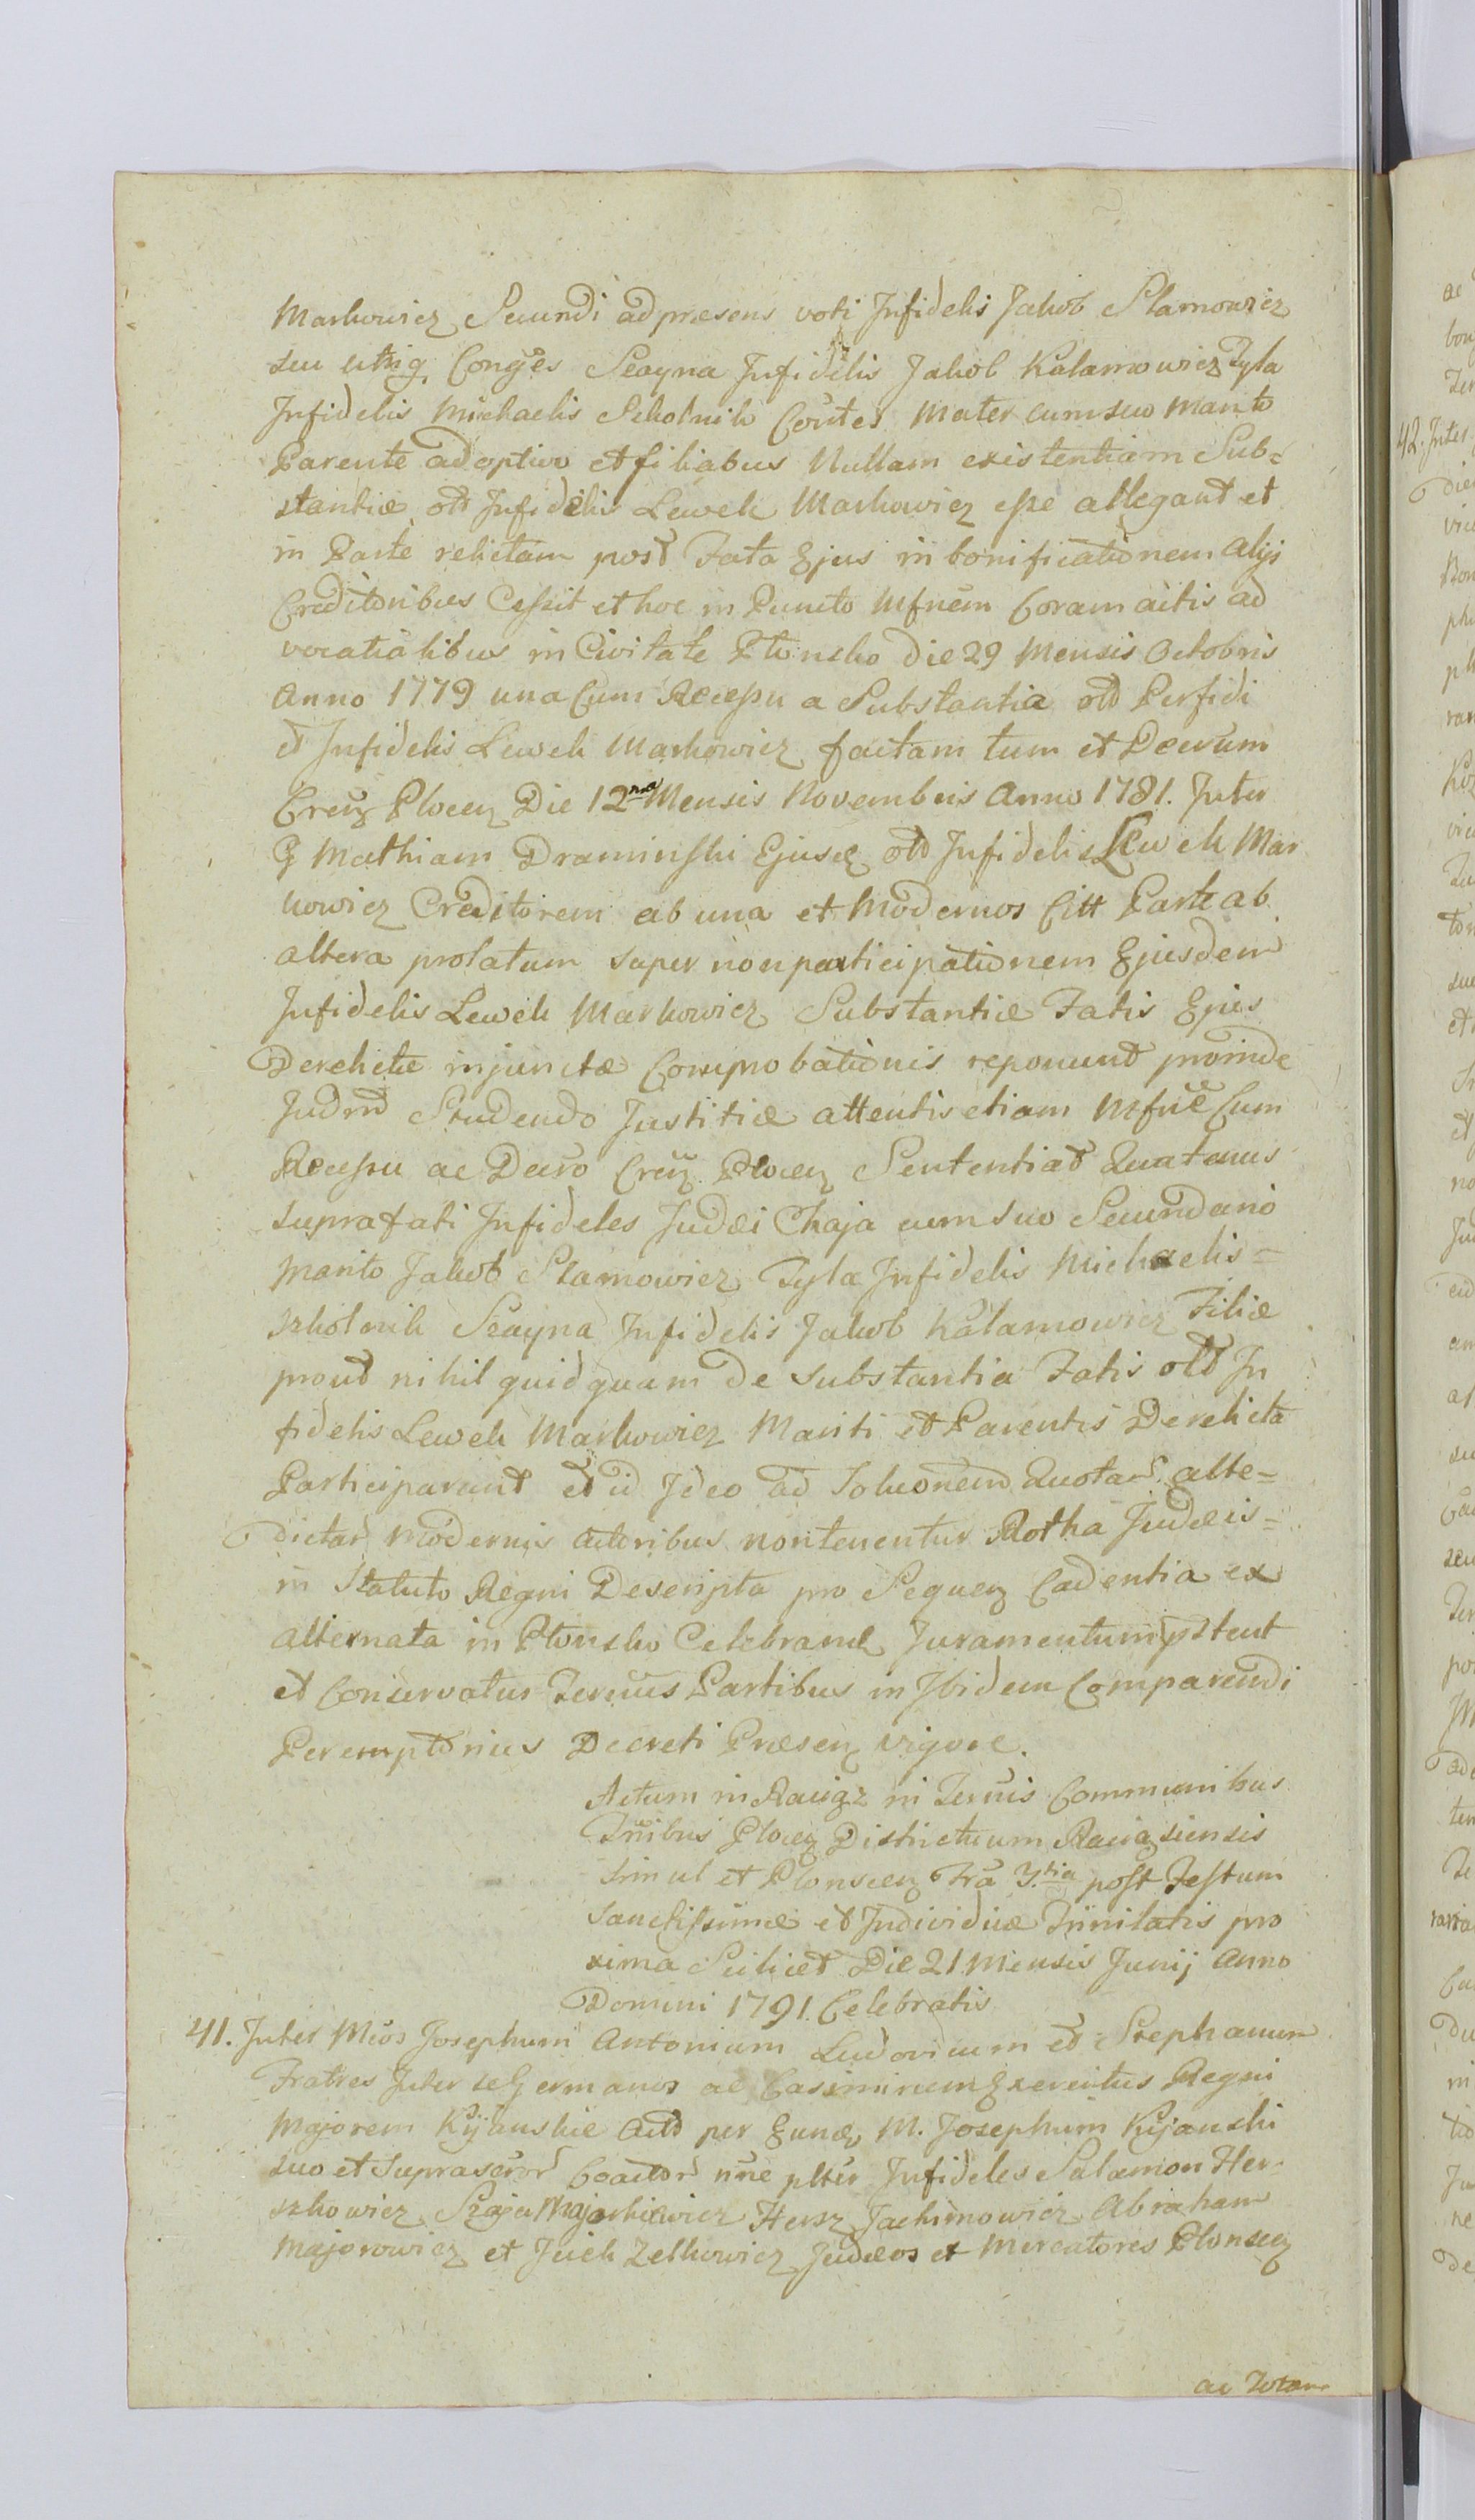 Markowicz Secundi ad præsens voti Infidelis Jakob Slamowicz
seu utriq Conges Szayna Infidelis Jakob Kalamowicz Tyla
Infidelis Michaelis Szkolnik Contes Mater cum suo Marito
Parente adoptivo et filiabus Nullam existentiam Sub=
stantiæ olt Infidelis Lewek Markowicz esse allegant et
in Parte relictam post Fata Ejus in bonificationem alijs
Creditoribus Cessit et hoc in Puncto Mfnem Coram actis ad
vocatialibus in Civitate Plonsko die 29 Mensis Octobris
Anno 1779 una Cum Recessu a Substantia olt Perfidi
et Infidelis Lewek Markowicz factam tum et Decrum
Crey Plocen Die 12ma Mensis Novembris Anno 1781. Inter
G Mathiam Draminski Ejusd olt Infidelis Lewek Mar
kowicz Creditorem ab una et Modernos Citt Parte ab
altera prolatum super non participationem Ejusdem
Infidelis Lewek Markowicz Substantiæ Fatis Ejus
Derelictæ injunctæ Comprobationis reponunt proinde
Judm Studendo Justitiæ attentis etiam Mfne Cum
Recessu ac Decro Crey Plocen Sententiat Quatenus
suprafati Infideles Judæi Chaja cum suo Secundario
Marito Jakob Slamowicz Tyla Infidelis Michaelis=
Szkolnik Szayna Infidelis Jakob Kalamowicz Filiæ
prout nihil quidquam de substantia Fatis olt In
fidelis Lewek Markowicz Mariti et Parentis Derelicta
Participarunt et id Ideo ad Soluonem Quotar alte=
dictar Modernis Actoribus non tenentur Rotha Judæis=
in Statuto Regni Descripta pro Sequen Cadentia ex
alternata in Plonsko Celebrand Juramentum pstent
et Conservatur Termus Partibus in Ibidem Comparendi
Peremptorius Decreti Præsen vigore.
Actum in Raciąz in Termis Communibus
Tribus Plocen Districtuum Raciąsiensis
simul et Plonscen Fra 3.tia post Festum
Sanctissimæ et Individuæ Trinitatis pro
xima Scilicet Die 21 Mensis Junij Anno
Domini 1791. Celebratis
41. Inter Mcos Josephum Antonium Ludovicum et Stephanum
Fratres Inter se Germanos ac Casimirum Exercitus Regni
Majorem Kijanskie Actt per Eund M. Josephum Kijanski
suo et Suprascror Coactor nne plter Infideles Salamon Her=
szkowicz Szaja Majorkiewicz Hersz Jachimowicz Abraham
Majorowicz et Jcick Zelkowicz Judæos et Mercatores Plonscen
ac Totam
42. Inter